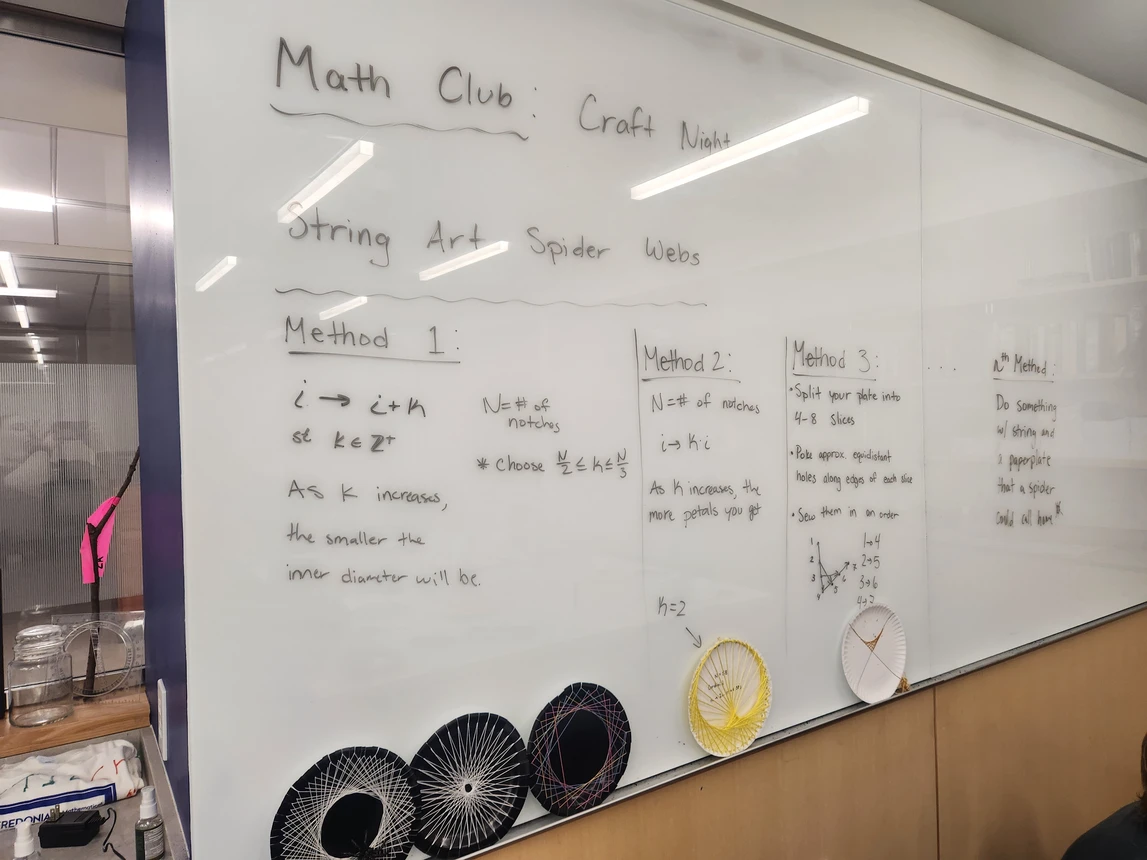 Math Club: Craft Night
String Art Spider Webs
Method 1:
i → i+k
st k ∈ Z⁺
N=# of
notches
* Choose N/2 ≤ k ≤ N/3
As k increases,
the smaller the
inner diameter will be.
Method 2:
N=# of notches
i → k·i
As k increases, the
more petals you get
k=2
Method 3:
•Split your plate into
4-8 slices
•Poke approx. equidistant
holes along edges of each slice
•Sew them in an order
1
2
3
4
5
6
7
1→4
2→5
3→6
4→7
....
nth Method:
Do something
w/ string and
a paperplate
that a spider
could call home